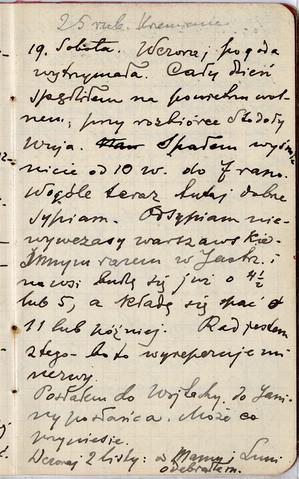 25 rub. Krzemieniec
19. Sobota. Wczoraj pogoda
wytrzymała. Cały dzień
spędziłem na powietrzu wol-
nem; przy rozbiórce stodoły
wuja. Spałem wyśmie
nicie od 10 w. do 7 rano.
Wogóle teraz tutaj dobrze
sypiam. Odsypiam nie-
wywczasy warszawskie.
Innym razem w Jastrz. i
na wsi budzę się już o 4 1/2
lub 5, a kładę się spać o
11 lub później. Rad jestem
z tego - bo to wyreperuje mi
nerwy.
Posłałem do Wojlachy, do Jani-
ny posłańca. Może co
przyniesie.
Wczoraj 2 listy: od Mamy i Luni
odebrałem.